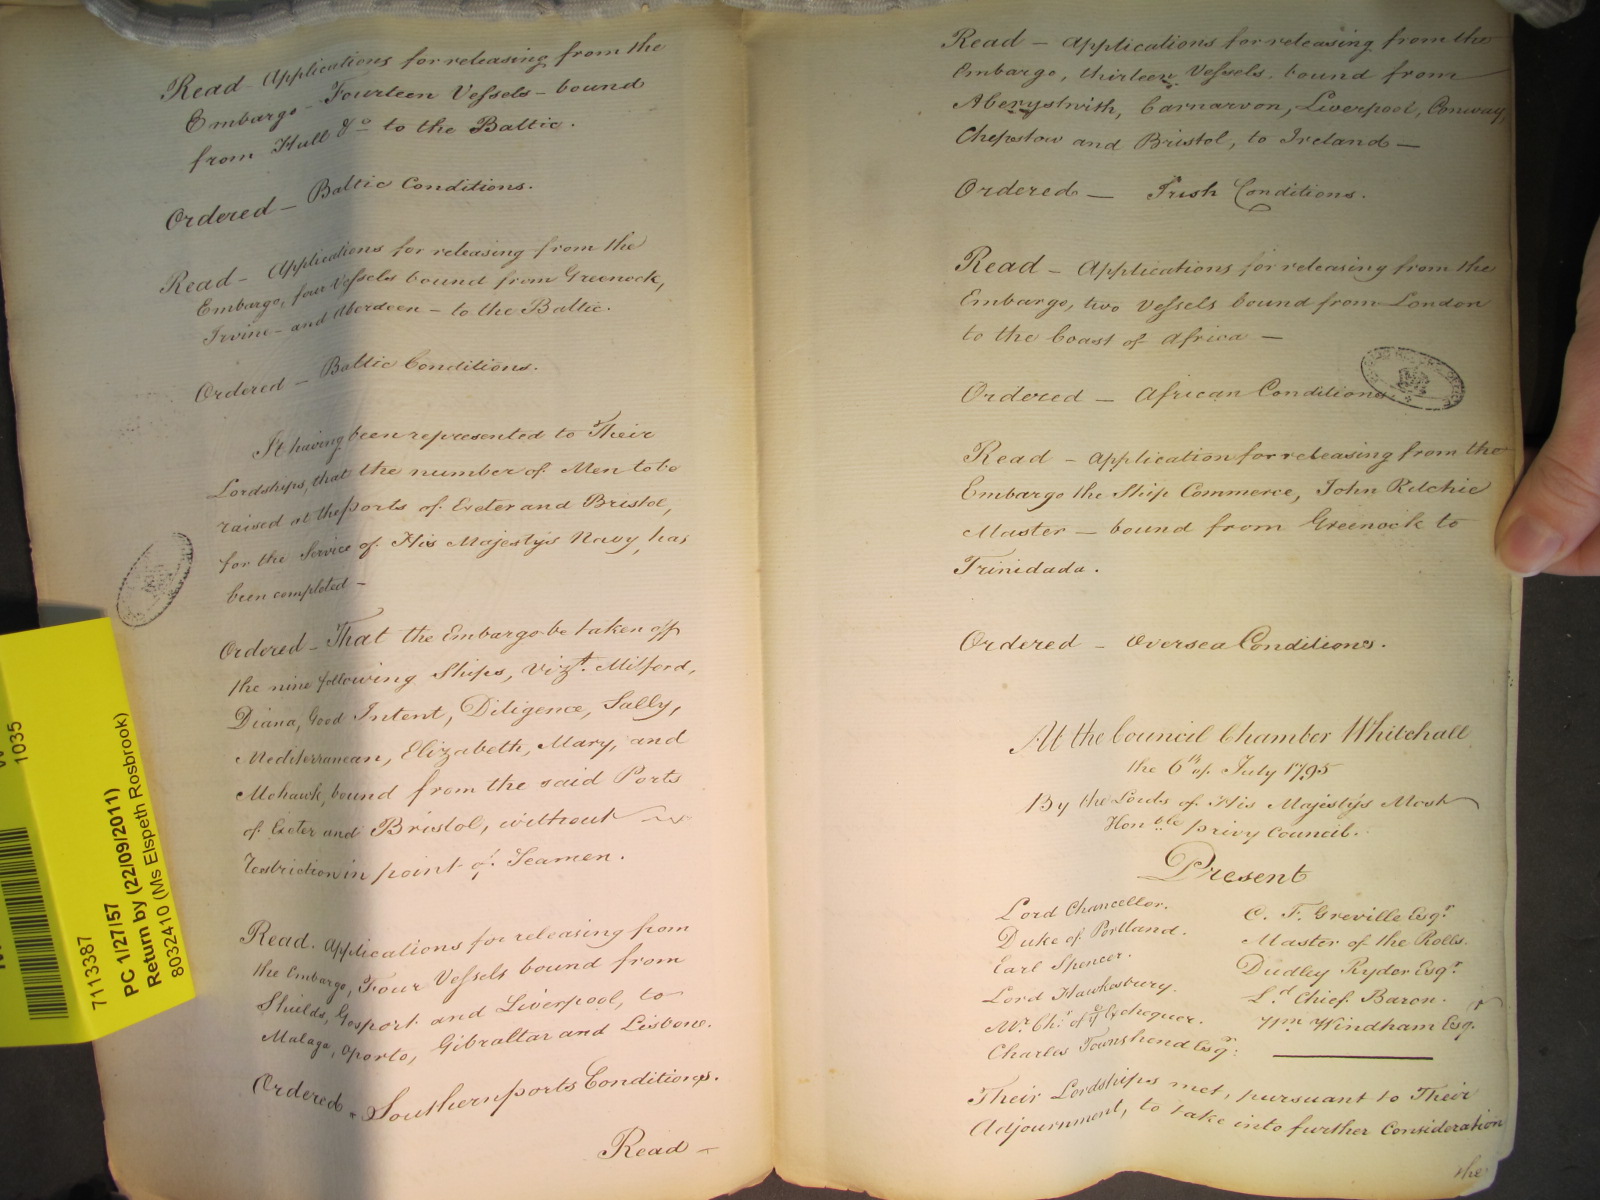 Read - Applications for releasing from the
Embargo - Fourteen Vessels - bound
from Hull &c to the Baltic.
Ordered - Baltic Conditions.
Read - Applications for releasing from the
Embargo, four Vessels bound from Greenock,
Irvine - and Aberdeen - to the Baltic.
Ordered - Baltic Conditions.
It having been represented to Their
Lordships, that the number of Men to be
raised at the ports of Exeter and Bristol,
for the Service of His Majesty's Navy, has
been completed -
Ordered - That the Embargo be taken off
the nine following Ships, Vizt. Milford,
Diana, Good Intent, Diligence, Sally,
Mediterranean, Elizabeth, Mary, and
Mohawk, bound from the said Ports
of Exeter and Bristol, without
restriction in point of Seamen.
Read. Applications for releasing from
the Embargo, Four Vessels bound from
Shields, Gosport and Liverpool, to
Malaga, Oporto, Gibraltar and Lisbone.
Ordered - Southern ports Conditions.
Read -
Read - Applications for releasing from the
Embargo, thirteen Vessels, bound from
Aberystwith, Carnarvon, Liverpool, Conway,
Chepstow and Bristol, to Ireland -
Ordered - Irish Conditions.
Read - Applications for releasing from the
Embargo, two Vessels bound from London
to the Coast of Africa -
Ordered - African Conditions
Read - Application for releasing from the
Embargo the Ship Commerce, John Ritchie
Master - bound from Greenock to
Trinidada.
Ordered - Oversea Conditions.
At the Council Chamber Whitehall
the 6th of July 1795
By the Lords of His Majesty's Most
Honble privy Council.
Present
Lord Chancellor.
Duke of Portland.
Earl Spencer.
Lord Hawkesbury.
Mr. Chr. of ye Exchequer.
Charles Townshend Esqr:
C. F. Greville Esqr
Master of the Rolls.
Dudley Ryder Esqr.
Ld Chief Baron.
Wm Windham Esqr.
Their Lordships met, pursuant to Their
Adjournment, to take into further Consideration
the
1035
7113387
PC 1/27/57
Return by (22/09/2011)
8032410 (Ms Elspeth Rosbrook)